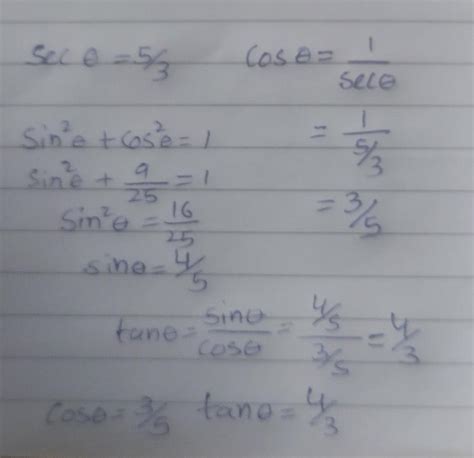 sec θ = 5/3 cos θ = 1/secθ
sin²θ + cos²θ = 1 = 1/(5/3)
sin²θ + 9/25 = 1
= 3/5
sin²θ = 16/25
sinθ = 4/5
tanθ = sinθ/cosθ = (4/5)/(3/5) = 4/3
cosθ = 3/5 tanθ = 4/3